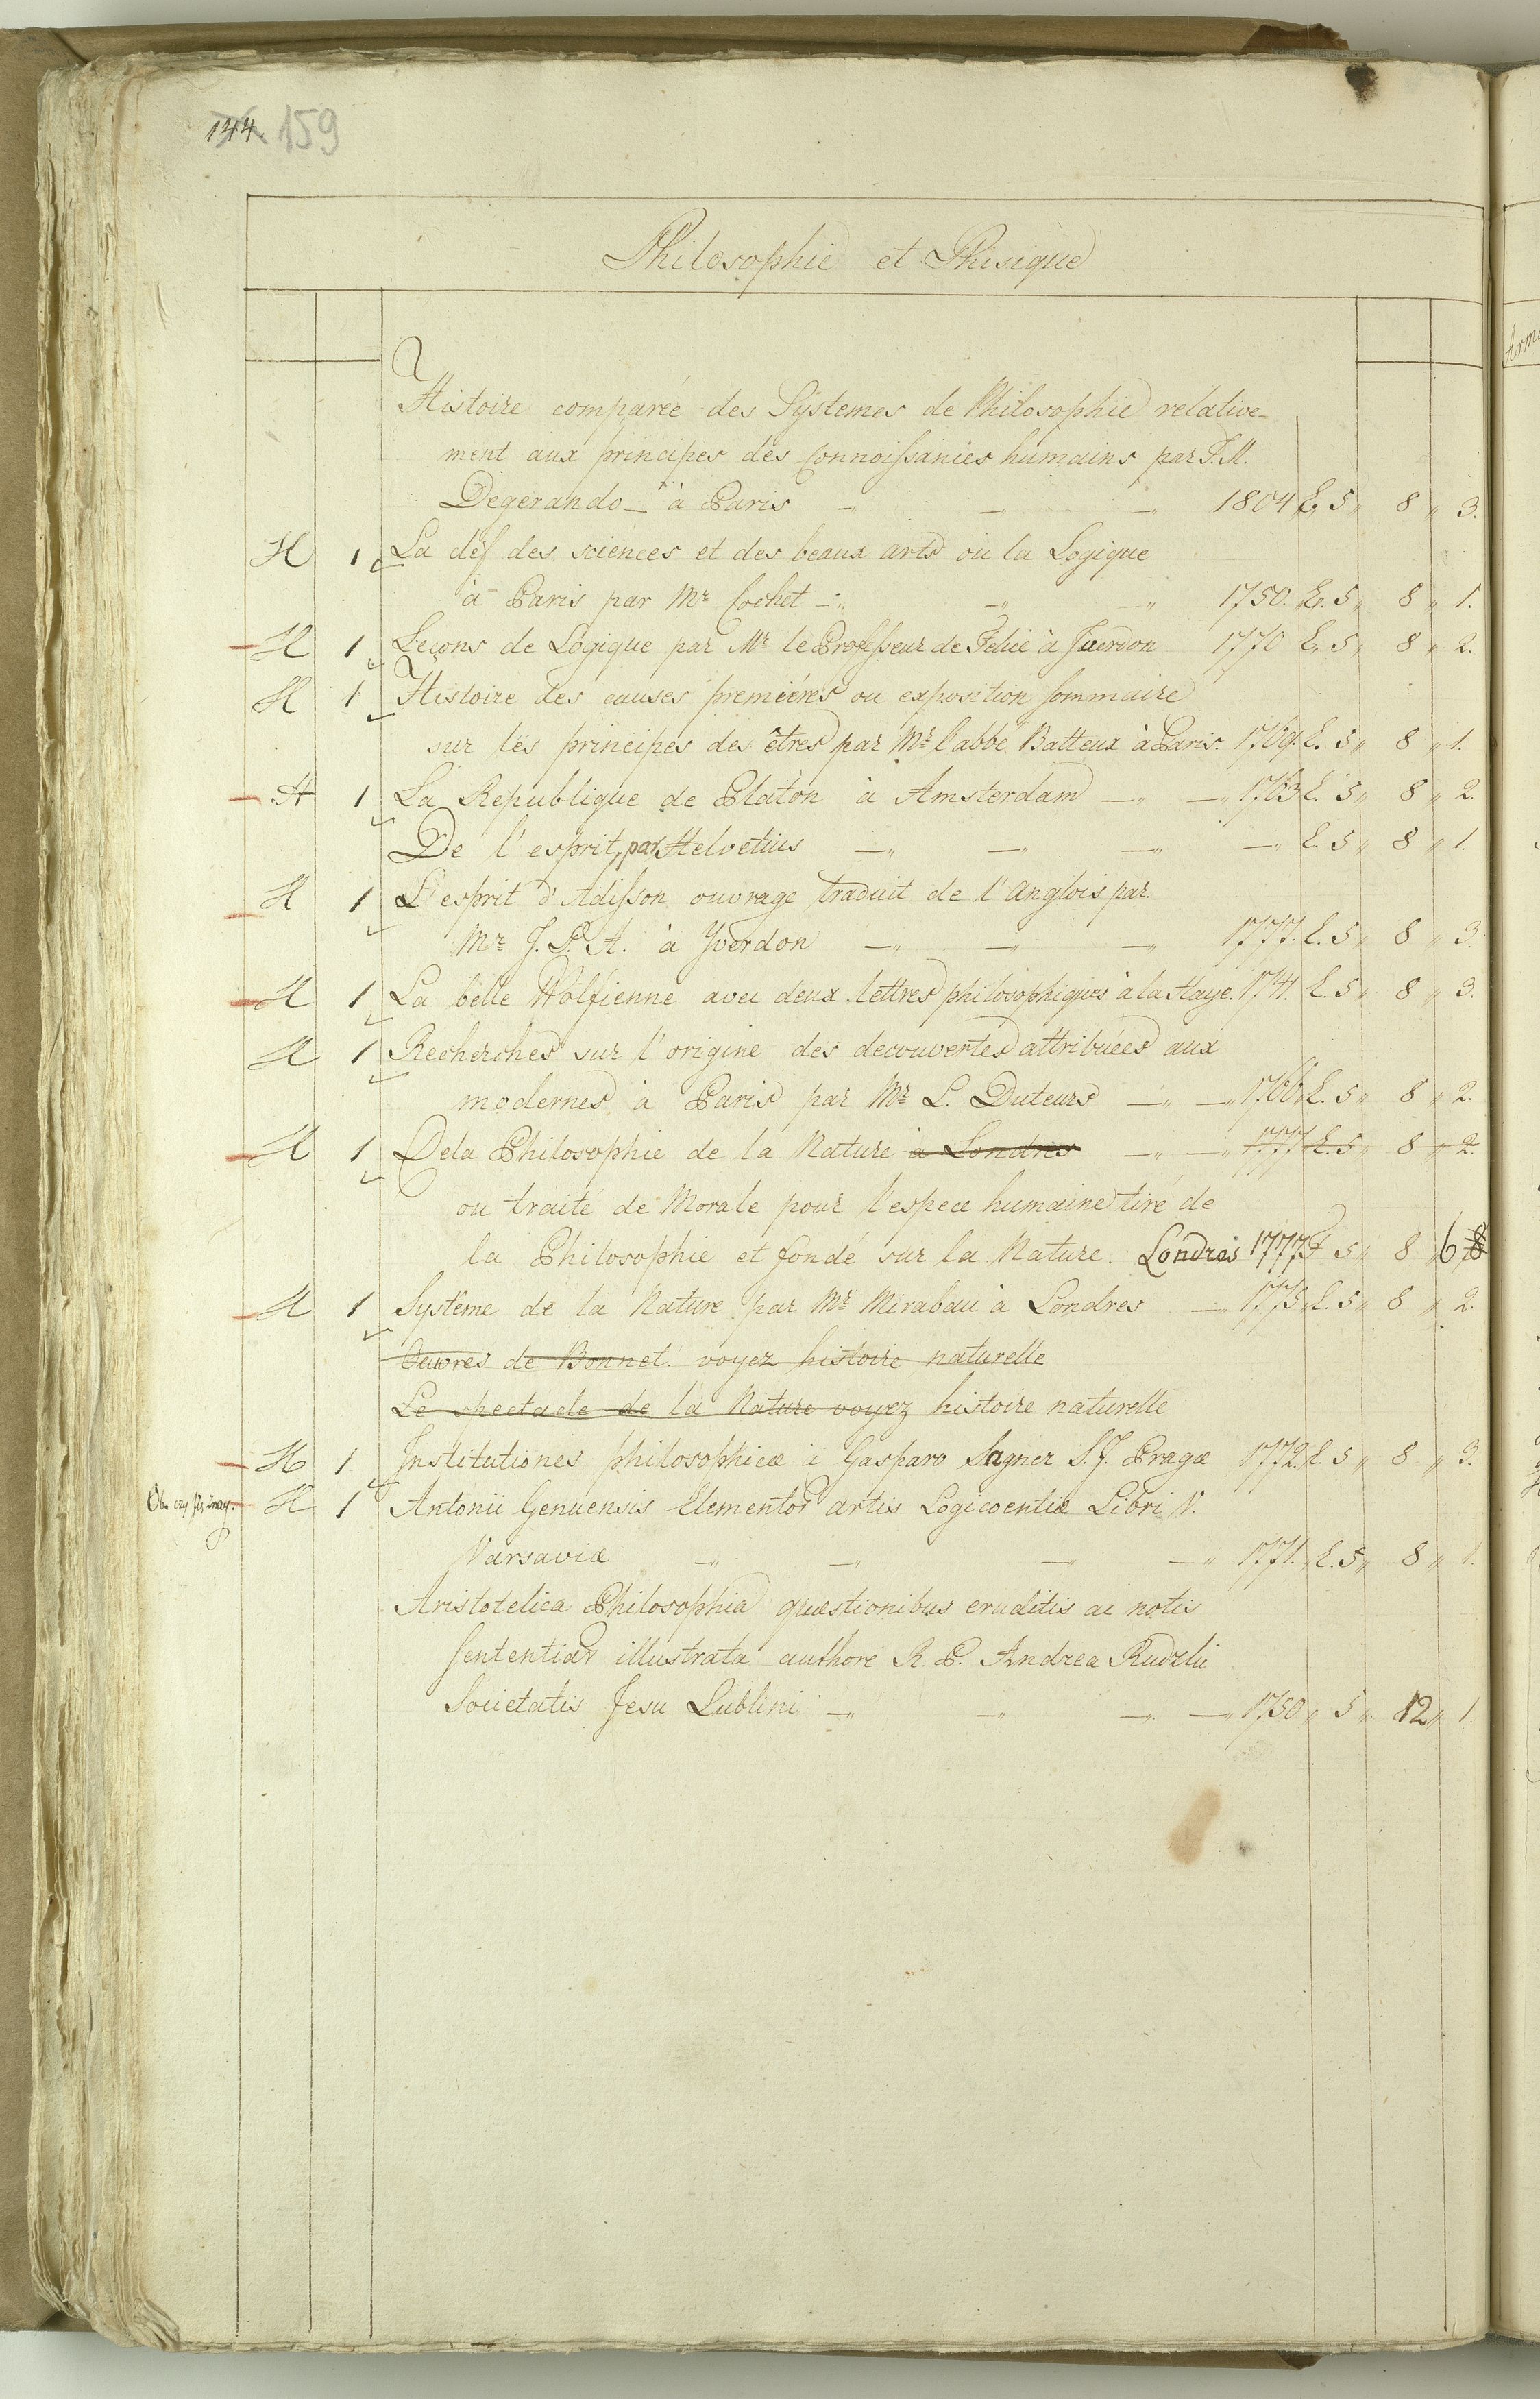 144. 159
Philosophie et Phisique
Histoire comparée des Systemes de Philosophie relative-
ment aux principes des Connoissances humains par J. M.
Degerando à Paris 1804 L. 5 8 3.
H 1 La clef des sciences et des beaux arts ou la Logique
à Paris par Mr Cochet 1750. L. 5 8 1.
H 1 Leçons de Logique par Mr le Professeur de Felice à Jverdon 1770 L. 5 8 2.
H 1 Histoire des causes premiéres ou exposition sommaire
sur les principes des êtres par Mr l'abbé Batteux à Paris. 1769. L. 5 8 1.
H 1 La Republique de Platon à Amsterdam 1763 L. 5 8 2.
De l'esprit, par Helvetius L. 5 8 1.
H 1 L'esprit d'Adisson ouvrage traduit de l'Anglois par
Mr J. P. A. à Yverdon 1777. L. 5 8 3.
H 1 La belle Wolfienne avec deux lettres philosophiques à la Haye. 1741. L. 5 8 3.
H 1 Recherches sur l'origine des decouvertes attribuées aux
modernes à Paris par Mr L. Duteurs 1766 L. 5 8 2.
H 1 De la Philosophie de la Nature à Londres 1777 L. 5 8 2.
ou traité de Morale pour l'espece humaine tiré de
la Philosophie et fondé sur la Nature. Londres 1777 5 8 6
H 1 Systême de la Nature par Mr Mirabau à Londres 1775 L. 5 8 2.
Oeuvres de Bonnet voyez histoire naturelle
Le spectacle de la Nature voyez histoire naturelle
H 1 Institutiones philosophicæ à Gasparo Sagner S. J. Pragæ 1772. L. 5 8 3.
H 1 Antonii Genuensis Elementor artis Logicoentiæ Libri V.
Varsaviæ 1771. L. 5 8 1.
Aristotelica Philosophia quæstionibus eruditis ac notis
sententiar illustrata authore R. P. Andrea Rudzki
Societatis Jesu Lublini 1750 5 12 1.